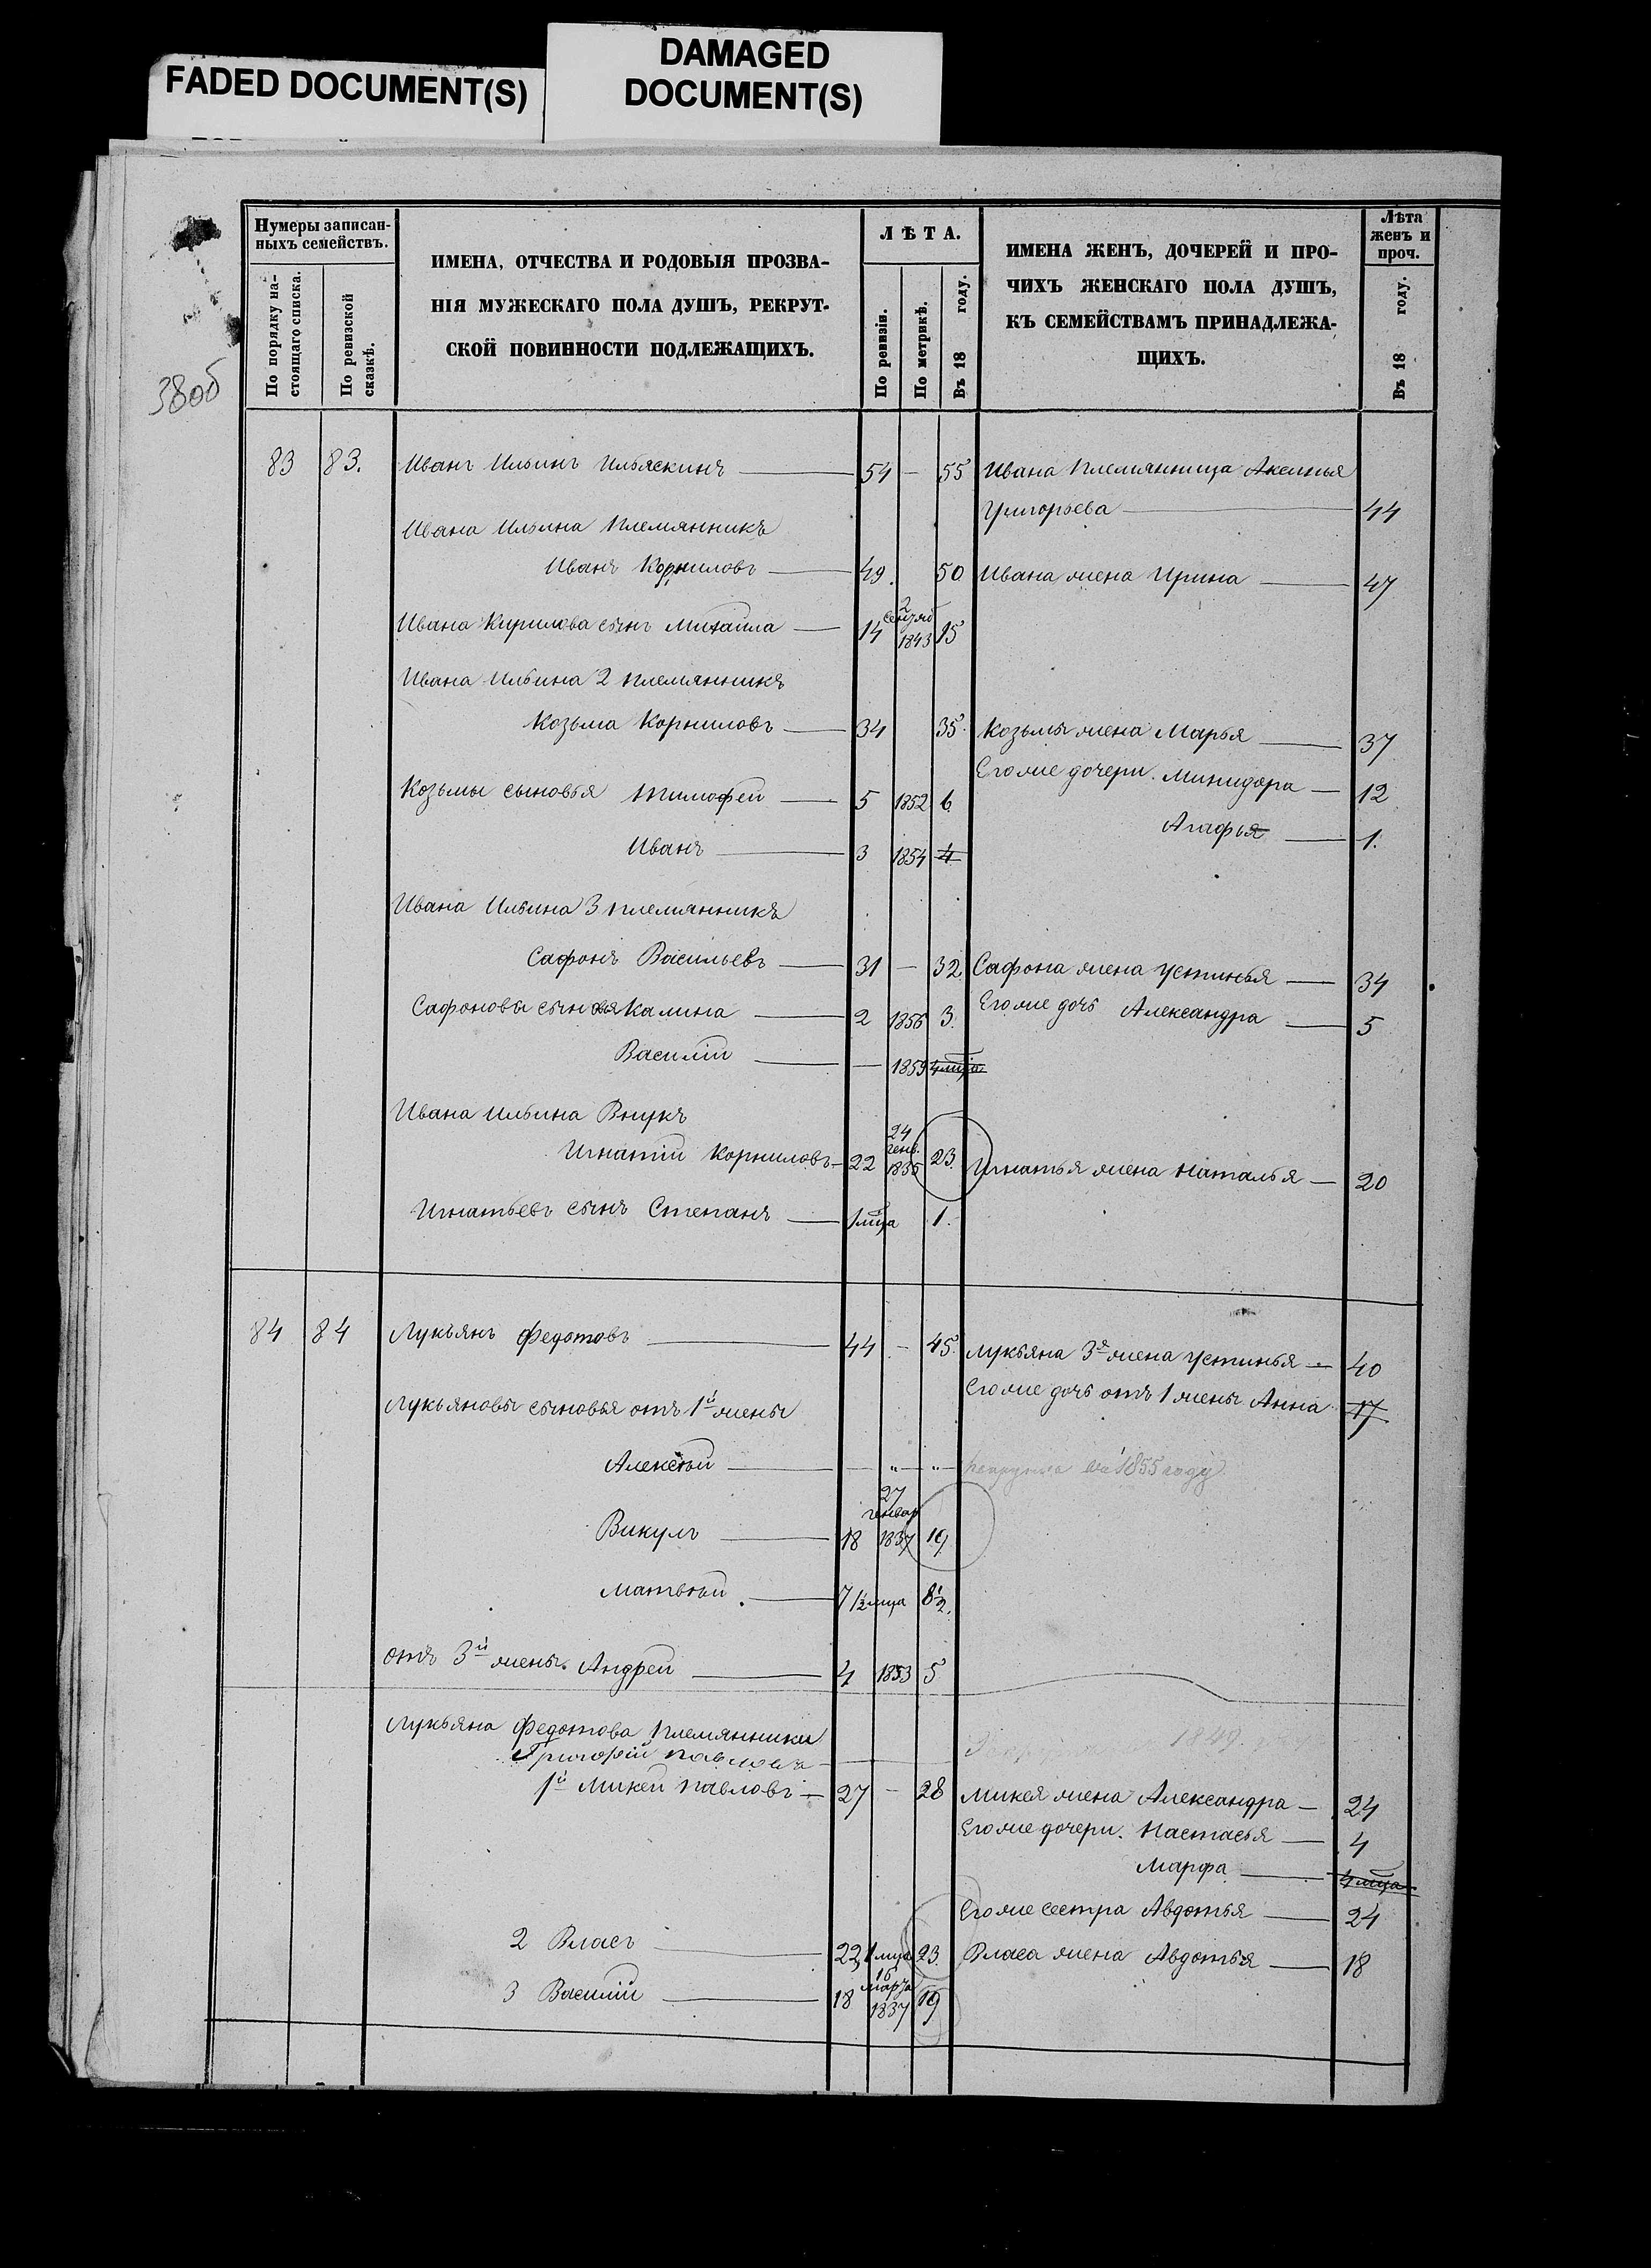 FADED DOCUMENT(S)
DAMAGED
DOCUMENT(S)
Нумеры записан-
ныхъ семействъ.
По порядку на-
стоящаго списка.
По ревизской
сказкѣ.
ИМЕНА, ОТЧЕСТВА И РОДОВЫЯ ПРОЗВА-
НІЯ МУЖЕСКАГО ПОЛА ДУШЪ, РЕКРУТ-
СКОЙ ПОВИННОСТИ ПОДЛЕЖАЩИХЪ.
ЛѢТА.
По ревизіи.
По метрикѣ.
Въ 18 году.
ИМЕНА ЖЕНЪ, ДОЧЕРЕЙ И ПРО-
ЧИХЪ ЖЕНСКАГО ПОЛА ДУШЪ,
КЪ СЕМЕЙСТВАМЪ ПРИНАДЛЕЖА-
ЩИХЪ.
Лѣта
женъ и
проч.
Въ 18 году.
38об
83 83. Иванъ Ильинъ Ильяскинъ — 54 — 55 Ивана племянница Аксинья
Григорьева — 44
Ивана Ильина племянникъ
Иванъ Корниловъ — 49. 50 Ивана жена Ирина — 47
Ивана Кирилова сынъ Михаила — 14 2 сентяб 1843 15
Ивана Ильина 2 племянникъ
Козьма Корниловъ — 34 35. Козьмы жена Марья — 37
Его же дочери. Минидора — 12
Козьмы сыновья Тимофей — 5 1852 6
Агафья — 1.
Иванъ — 3 1854 4
Ивана Ильина 3 племянникъ
Сафонъ Васильевъ — 31 — 32. Сафона жена Устинья — 34
Сафоновы сыновья Калина — 2 1856 3. Его же дочь Александра — 5
Василій — — 1859 4 мца
Ивана Ильина Внукъ
Игнатій Корниловъ — 22 24 генв. 1835 23. Игнатья жена Наталья — 20
Игнатьевъ сынъ Степанъ — 1 мца 1.
84 84 Лукьянъ Федотовъ — 44 — 45. Лукьяна 3я жена Устинья — 40
Его же дочь отъ 1 жены Анна 17
Лукьяновы сыновья отъ 1й жены
Алексѣй — „ — „ — въ 1855 году
Викулъ — 18 27 генвар 1837 19
Матвѣй. — 7 1/2 мца 8 1/2.
отъ 3й жены. Андрей — 4 1853 5
Лукьяна Федотова племянники
Григорій Павловъ — 1849
1й Микей Павловъ — 27 — 28 Микея жена Александра — 24
Его же дочери. Настасья — 4
Марфа — 4 мца
Его же сестра Авдотья — 24
2 Власъ — 22, 1 мца 23. Власа жена Авдотья — 18
3 Василій — 18 15 марта 1837 19